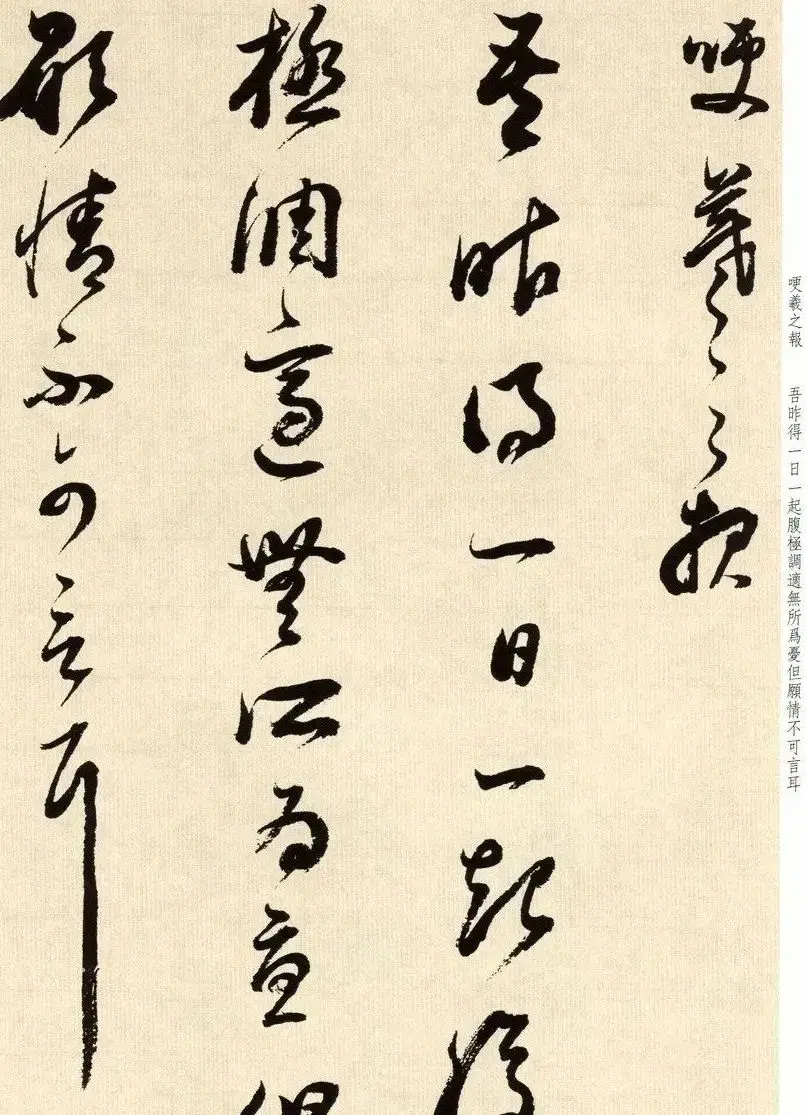 哽羲之報　吾昨得一日一起腹極調適無所爲憂但願情不可言耳
哽羲之報
吾昨得一日一起腹
極調適無所爲憂但
願情不可言耳